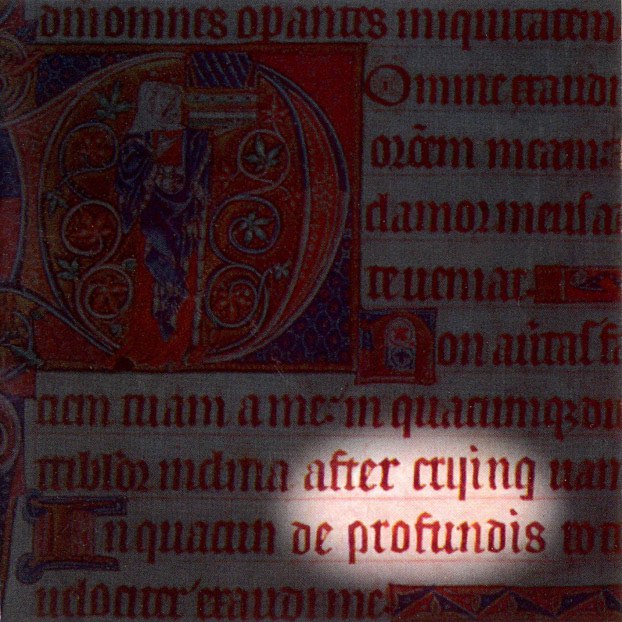 dñi omnes opantes iniquitatem
Omine exaudi
orōem meam:
clamor meus a
te ueniat.
Non auertas fa
ciem tuam a me: in quacumqꝫ
tribłor inclina after crying uam
In quacun de profundis
uelociter exaudi me